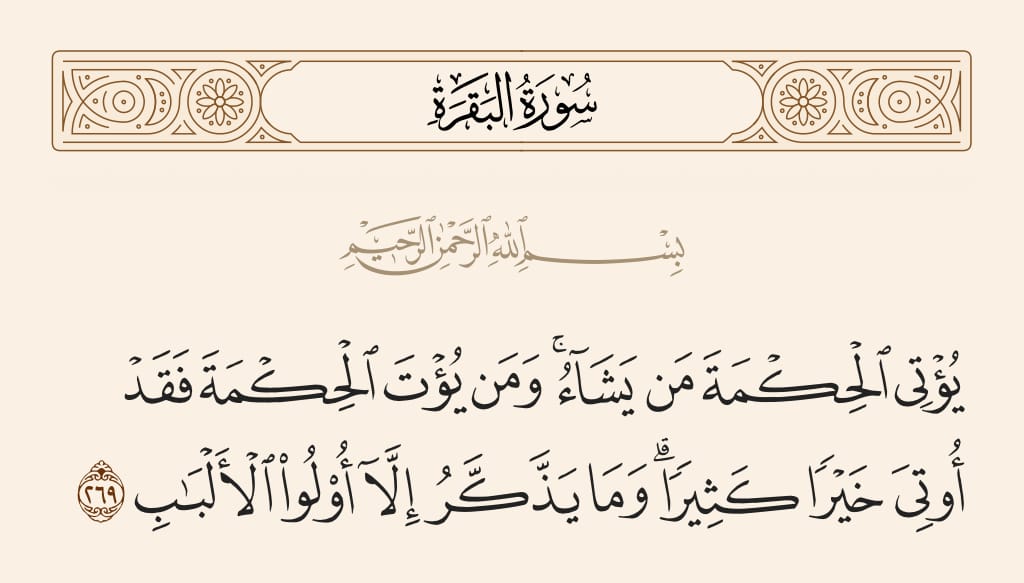 سُورَةُ البَقَرَةِ
بِسْمِ ٱللَّهِ ٱلرَّحْمَٰنِ ٱلرَّحِيمِ
يُؤْتِى ٱلْحِكْمَةَ مَن يَشَآءُ ۚ وَمَن يُؤْتَ ٱلْحِكْمَةَ فَقَدْ
أُوتِىَ خَيْرًا كَثِيرًا ۗ وَمَا يَذَّكَّرُ إِلَّآ أُو۟لُوا۟ ٱلْأَلْبَـٰبِ ٢٦٩